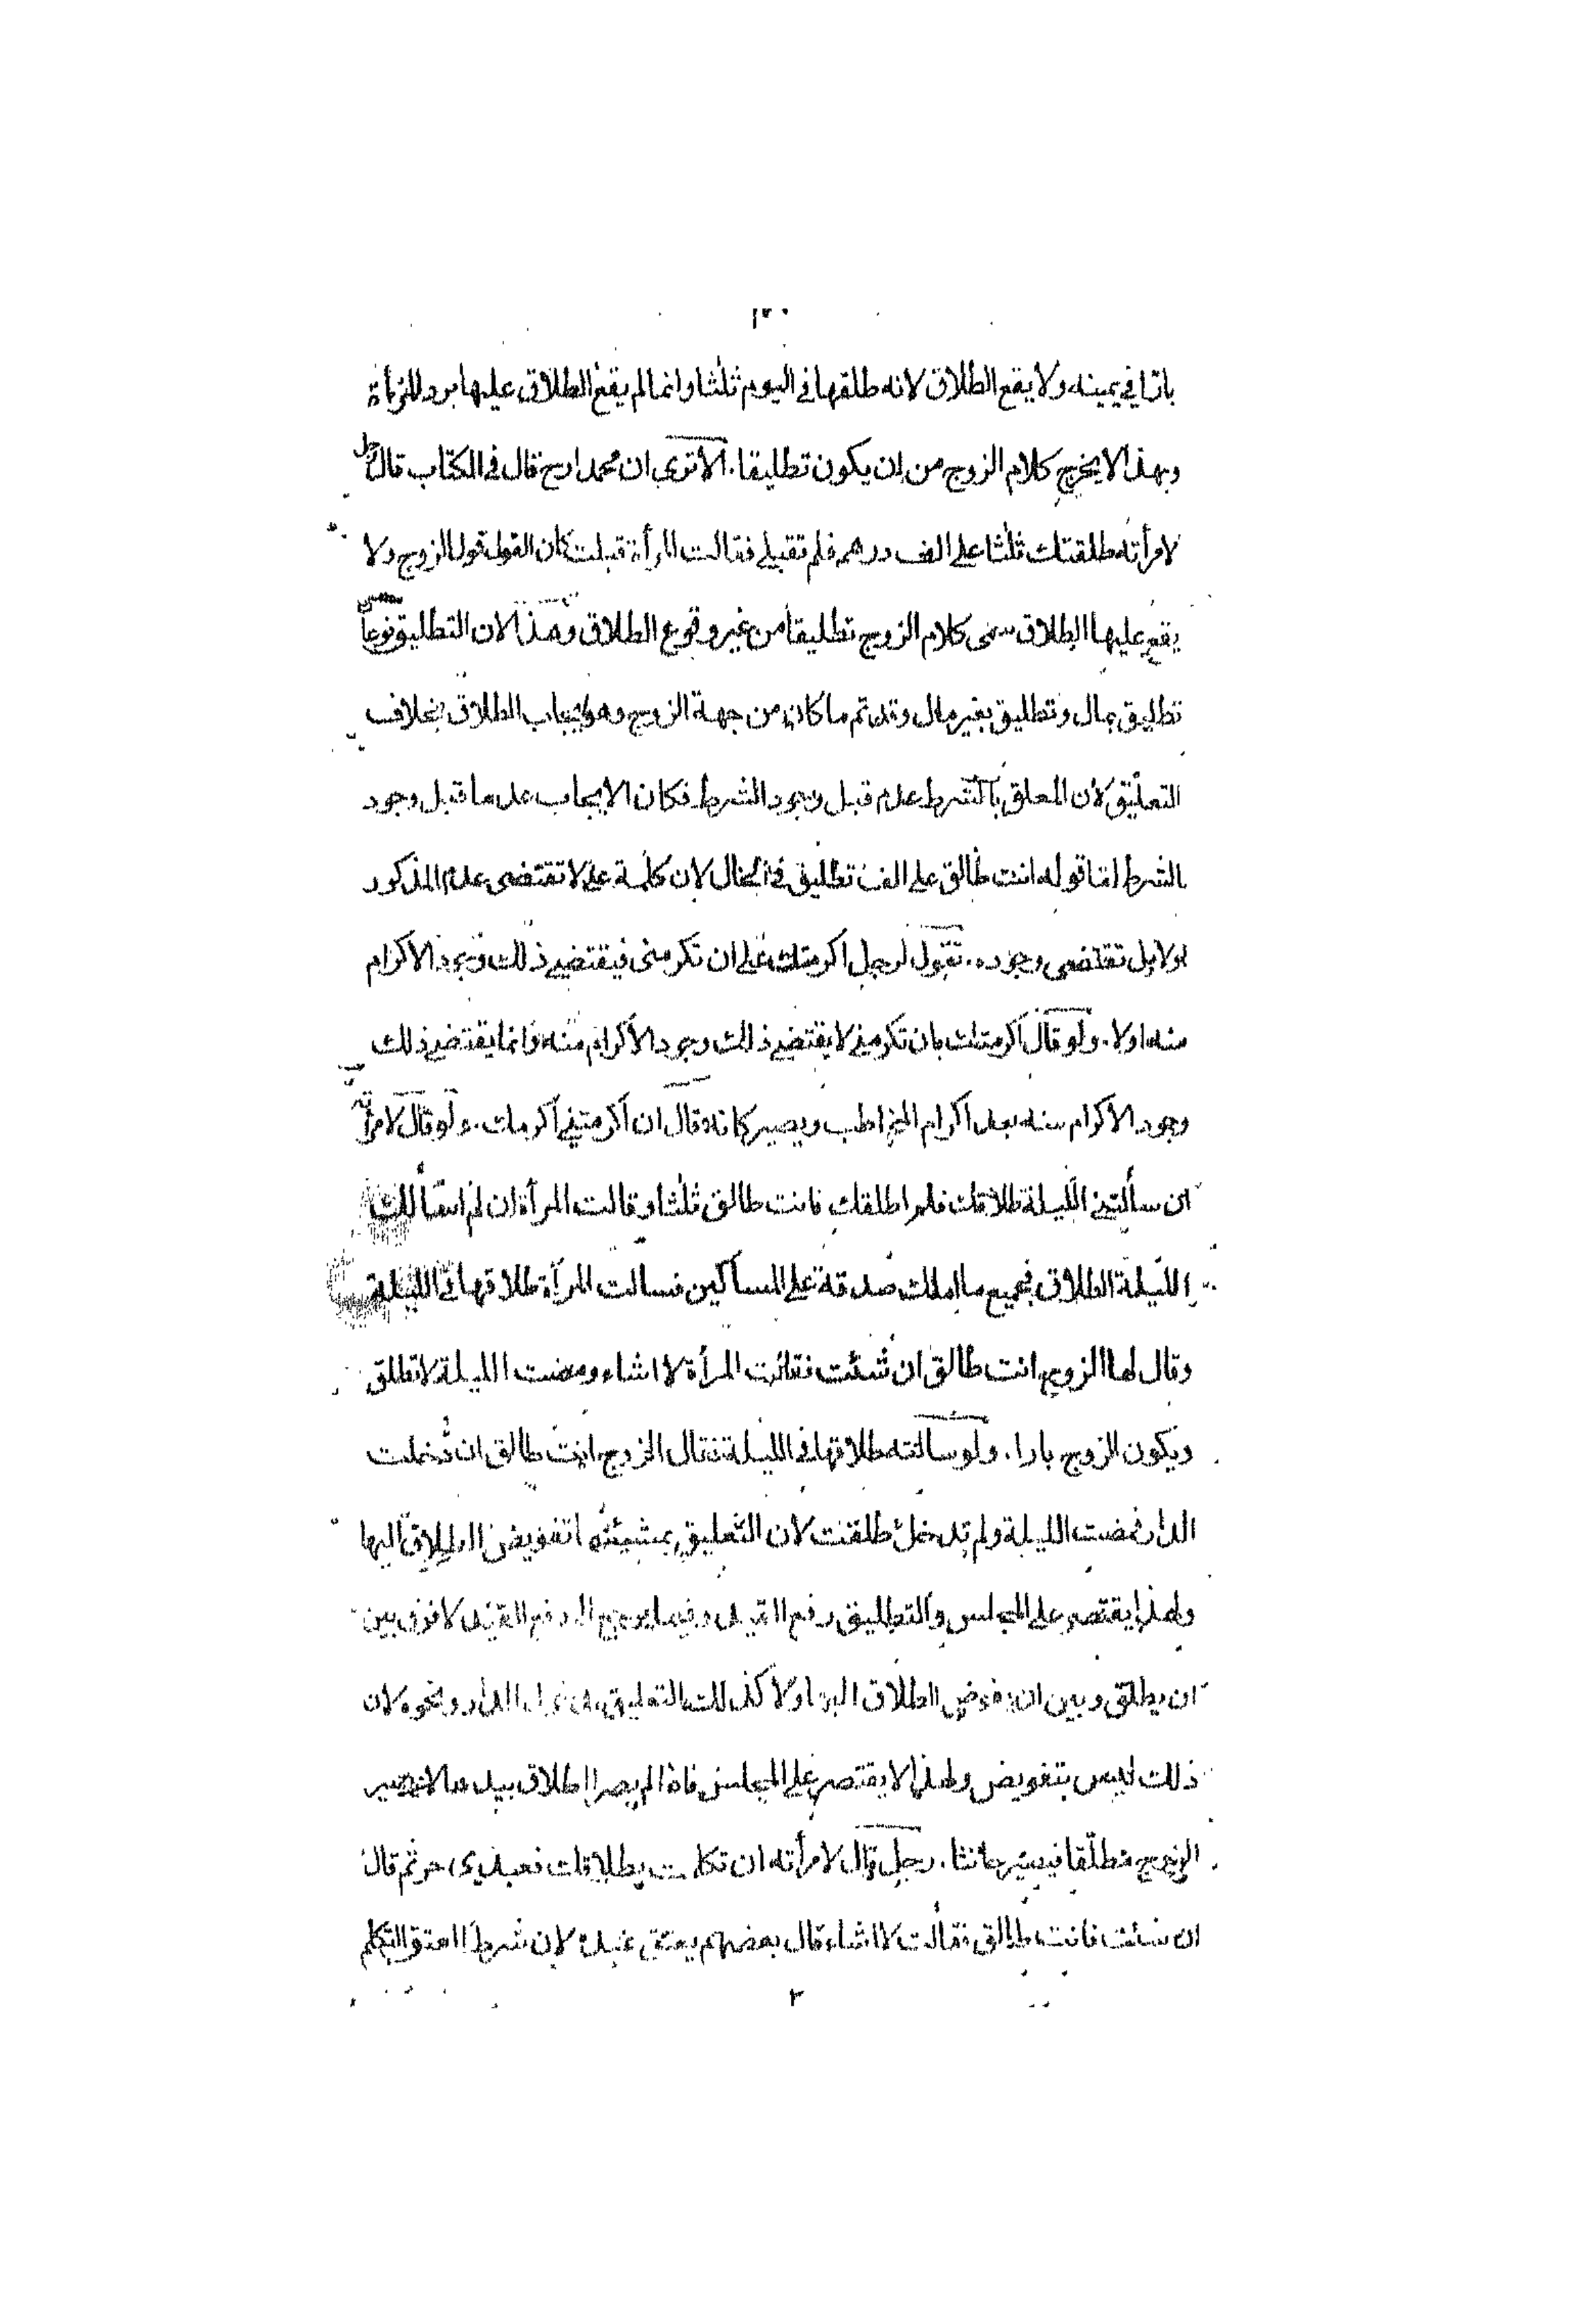 ١٣٠
بارّا في يمينه ولا يقع الطلاق لانه طلقها في اليوم ثلثا وانما لم يقع الطلاق عليها برد المرأة
وبهذا لا يخرج كلام الزوج من ان يكون تطليقا. الا ترى ان محمدا رح قال في الكتاب قال رجل
لامرأته طلقتك ثلثا على الف درهم فلم تقبلي فقالت المرأة قبلت كان القول قول الزوج ولا
يقع عليها الطلاق سمى كلام الزوج تطليقا من غير وقوع الطلاق وهذا لان التطليق نوعان
تطليق بمال وتطليق بغير مال وقد تم ما كان من جهة الزوج وهو ايجاب الطلاق بخلاف
التعليق لان المعلق بالشرط عدم قبل وجود الشرط فكان الايجاب عدما قبل وجود
الشرط اما قوله انت طالق على الف تطليق في الحال لان كلمة على لا تقتضى عدم المذكور
اولا بل تقتضى وجوده. تقول لرجل اكرمتك على ان تكرمنى فيقتضي ذلك وجود الاكرام
منه اولا. ولو قال اكرمتك بان تكرمني لا يقتضي ذلك وجود الاكرام منه وانما يقتضي ذلك
وجود الاكرام منه بعد اكرام المخاطب ويصير كانه قال ان اكرمتني اكرمك. ولو قال لامرأته
ان سألتني الليلة طلاقك فلم اطلقك فانت طالق ثلثا وقالت المرأة ان لم اسألك
الليلة الطلاق فجميع ما املك صدقة على المساكين فسالت المرأة طلاقها في الليلة
وقال لها الزوج انت طالق ان شئت فقالت المرأة لا اشاء ومضت الليلة لا تطلق
ويكون الزوج بارا. ولو سالته طلاقها في الليلة فقال الزوج انت طالق ان دخلت
الدار فمضت الليلة ولم تدخل طلقت لان التعليق بمشيئتها تفويض الطلاق اليها
ولهذا يقتصر على المجلس والتطليق رفع القيد وفيما يرجع الى رفع القيد لا فرق بين
ان يطلق وبين ان يفوض الطلاق اليها ولا كذلك التعليق بدخول الدار ونحوه لان
ذلك ليس بتفويض ولهذا لا يقتصر على المجلس فاذا لم يصر الطلاق بيدها لا يصير
الزوج مطلّقا فيصير حانثا. رجل قال لامرأته ان تكلمت بطلاقك فعبدي حر ثم قال
ان شئت فانت طالق فقالت لا اشاء قال بعضهم يعتق عبده لان شرط العتق التكلم
٢